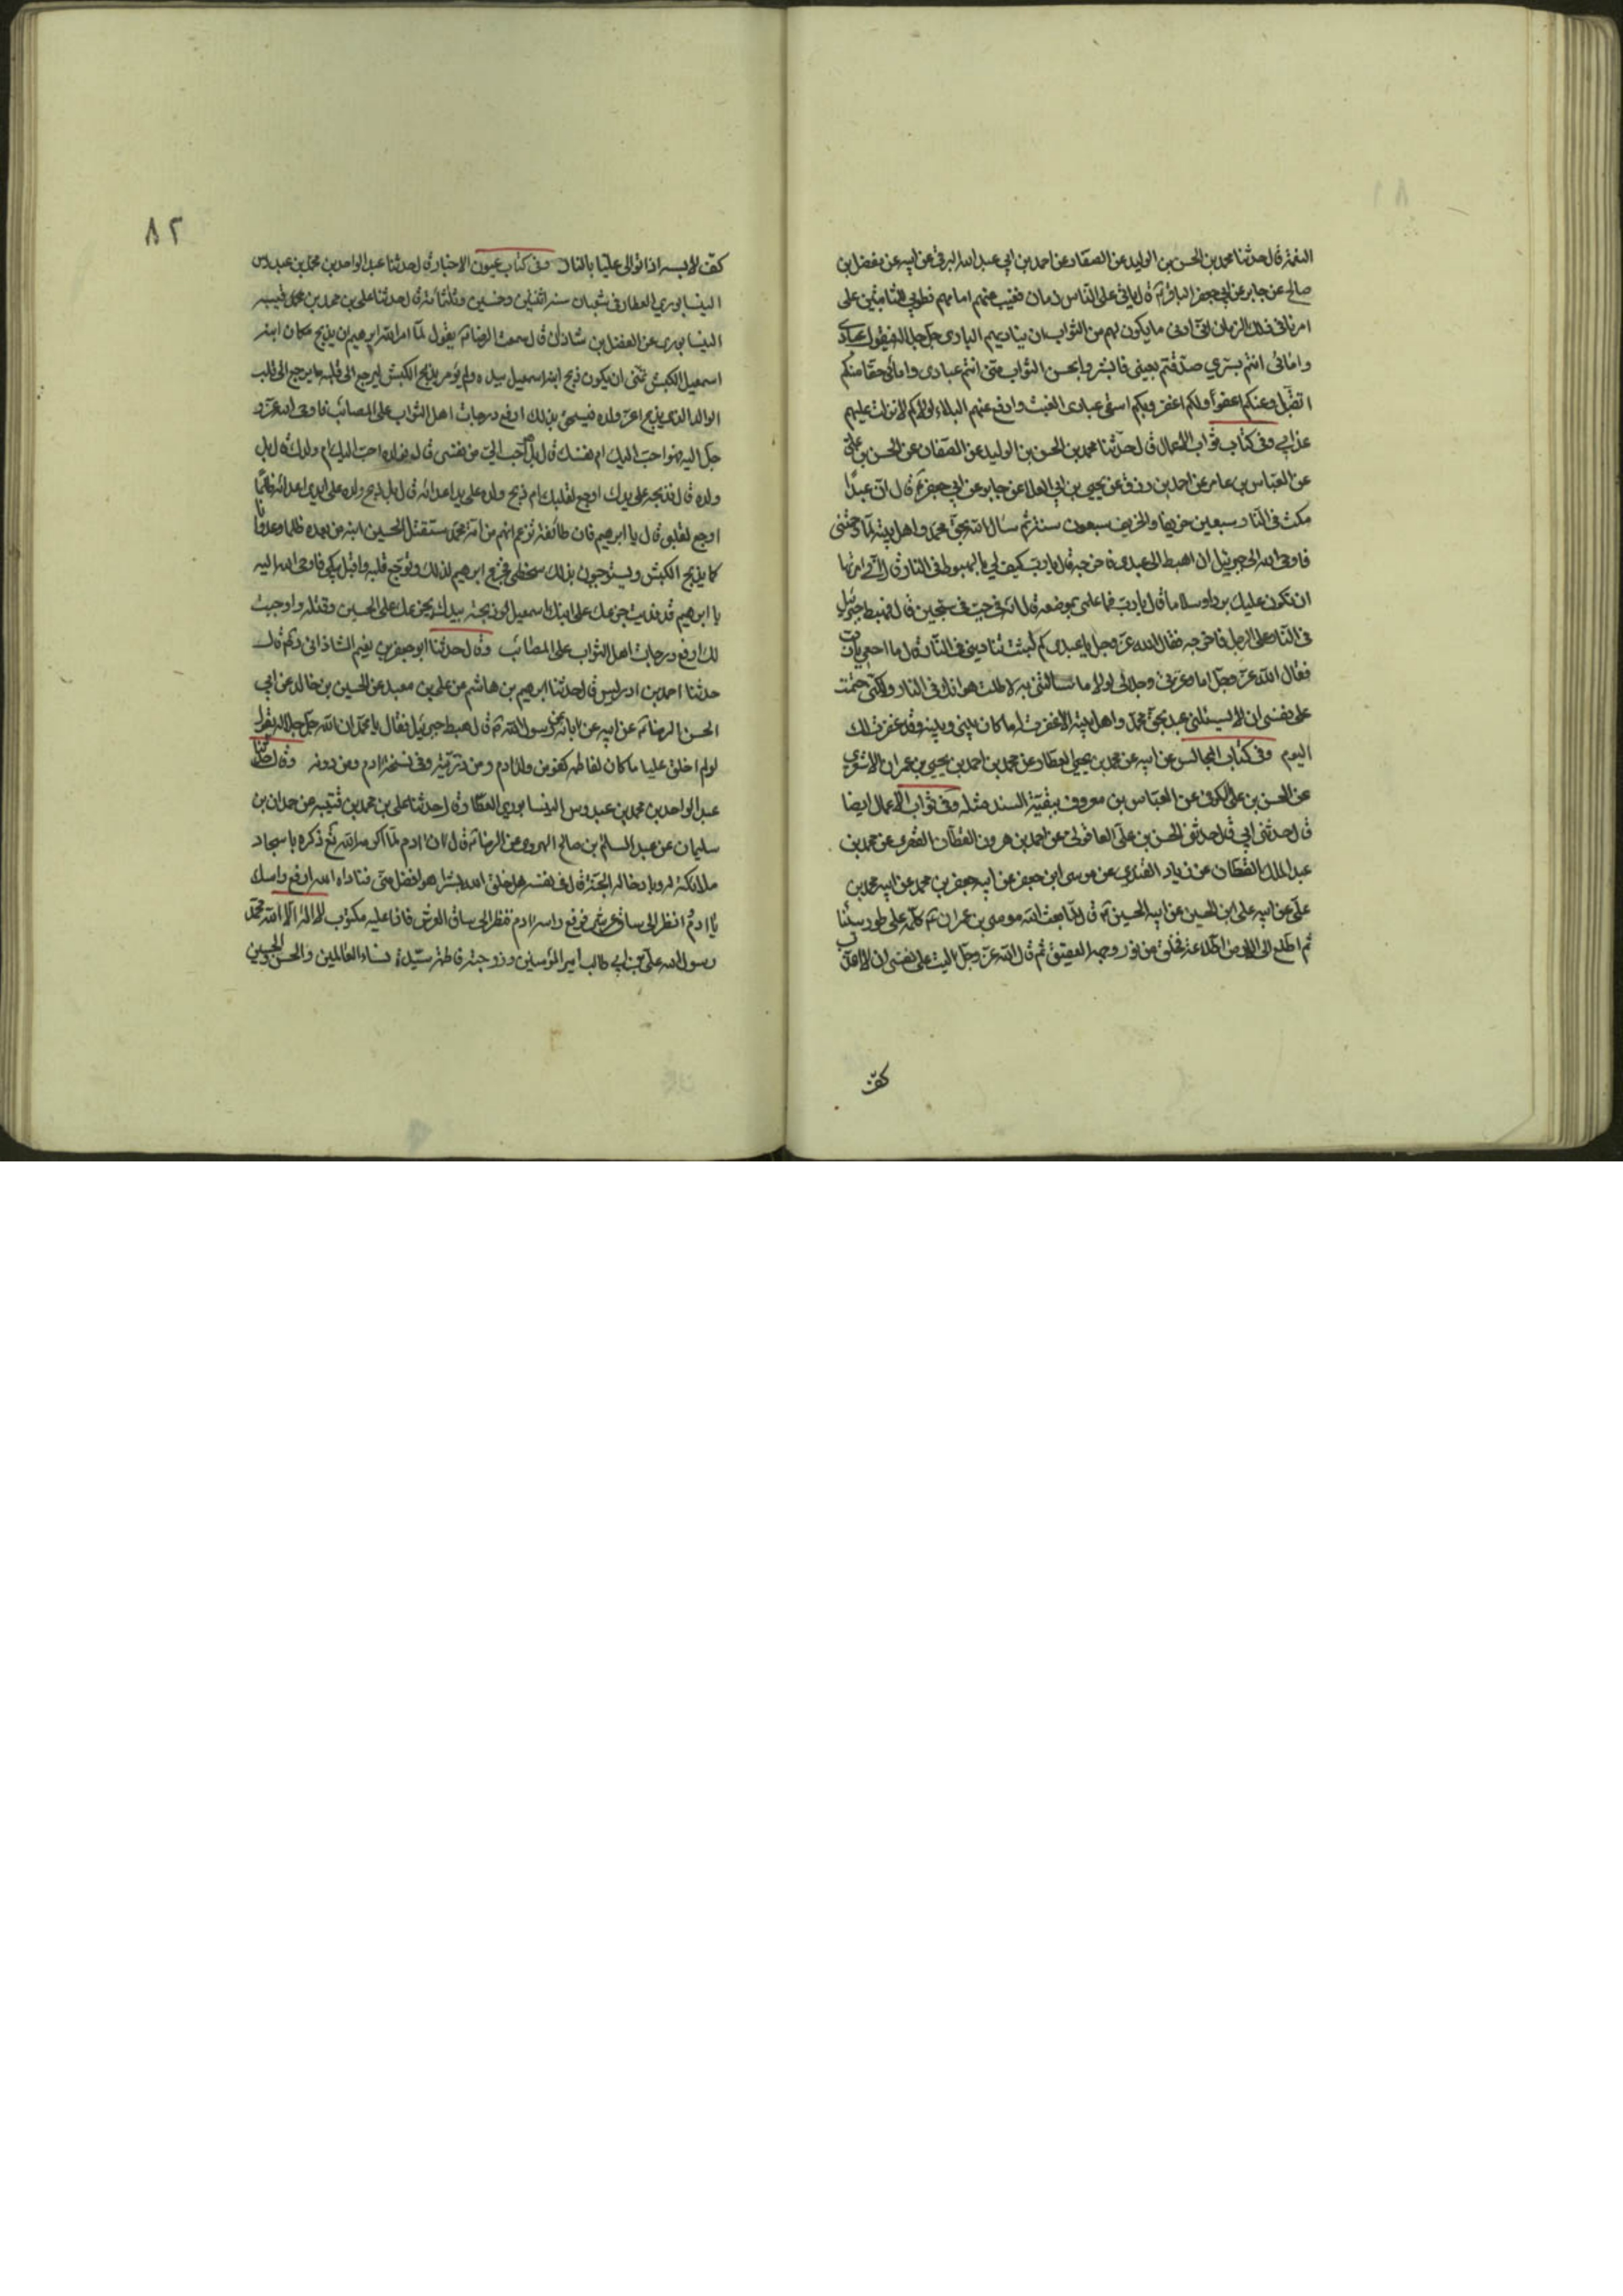 النعمة قال حدثنا محمد بن الحسن بن الوليد عن الصفار عن احمد بن ابي عبد الله البرقي عن ابيه عن مفضل بن
صالح عن جابر عن ابي جعفر الباقر ع قال ياتي على الناس زمان فيغيب عنهم امامهم فطوبى للثابتين على
امرنا في ذلك الزمان ان ادنى ما يكون لهم من الثواب ان يناديهم الباري جل جلاله فيقول عبادي
وامائي انتم بسري صدقتم بغيبي فابشروا بحسن الثواب مني انتم عبادي وامائي حقا منكم
اتقبل وعنكم اعفو ولكم اغفر وبكم اسقي عبادي الغيث وادفع عنهم البلاء لولاكم لانزلت عليهم
عذابي وفي كتاب ثواب الاعمال قال حدثنا محمد بن الحسن بن الوليد عن الصفار عن الحسن بن علي
عن العباس بن عامر عن احمد بن رزق عن يحيى بن ابي العلا عن جابر عن ابي جعفر ع قال ان عبدا
مكث في النار سبعين خريفا والخريف سبعون سنة ثم سال الله بحق محمد واهل بيته لما رحمتني
فاوحى الله الى جبرئيل ان اهبط الى عبدي فاخرجه قال يا رب كيف لي بالهبوط في النار قال اني امرتها
ان تكون عليك بردا وسلاما قال يا رب فما علمي بموضعه قال انه في جب في سجين قال فهبط جبرئيل
في النار على الرجل فاخرجه فقال الله عز وجل يا عبدي كم لبثت تناديني في النار قال ما احصي يا رب
فقال الله عز وجل اما وعزتي وجلالي لولا ما سالتني به لاطلت هوانك في النار ولكني حتمت
على نفسي ان لا يسئلني عبد بحق محمد واهل بيته الا غفرت له ما كان بيني وبينه وقد غفرت لك
اليوم وفي كتاب المجالس عن ابيه عن محمد بن يحيى العطار عن محمد بن احمد بن يحيى بن عمران الاشعري
عن الحسن بن علي الكوفي عن العباس بن معروف ببقية السند مثله وفي ثواب الاعمال ايضا
قال حدثني ابي قال حدثني الحسن بن علي العاقولي عن احمد بن هرون العطان عن محمد بن
عبد الملك القطان عن زياد القندي عن موسى ابن جعفر عن ابيه جعفر بن محمد عن ابيه محمد بن
علي عن ابيه على ابن الحسين عن ابيه الحسين ع قال لما بعث الله موسى بن عمران ثم كلمه على طور سينا
ثم اطلع الى الارض اطلاعة فخلق من نور وجهه العقيق ثم قال الله عز وجل اليت على نفسي ان لا اعذب
كف
٨٢
كف لابسه اذا توالى عليا بالنار وفي كتاب عيون الاخبار قال حدثنا عبد الواحد بن محمد بن عبدوس
النيسابوري العطار في شعبان سنة اثنتين وخمسين وثلثمائة قال حدثنا علي بن محمد بن قتيبه
النيسابوري عن الفضل بن شاذان قال سمعت الرضا ع يقول لما امر الله ابرهيم ان يذبح مكان ابنه
اسمعيل الكبش تمنى ان يكون ذبح ابنه اسمعيل بيده ولم يؤمر بذبح الكبش ليرجع الى قلبه ما يرجع الى قلب
الوالد الذي يذبح اعز ولده فيستحق بذلك ارفع درجات اهل الثواب على المصائب فاوحى الله عز و
جل اليه فهو احب اليك ام نفسك قال بل هو احب الي من نفسي قال فولده احب اليك ام ولدك قال بل
ولده قال فذبحه على يدك اوجع لقلبك ام ذبح ولده على يد اعدائه قال بل ذبح ولده على ايدي اعدائه ظلما
اوجع لقلبي قال يا ابرهيم فان طائفة تزعم انهم من امة محمد ستقتل الحسين ابنه من بعده ظلما وعدوانا
كما يذبح الكبش ويستوجبون بذلك سخطي فجزع ابرهيم لذلك وتوجع قلبه واقبل يبكي فاوحى الله اليه
يا ابرهيم قد فديت جزعك على ابنك اسمعيل لو ذبحته بيدك بجزعك على الحسين وقتله واوجبت
لك ارفع درجات اهل الثواب على المصائب وقال حدثنا ابو جعفر بن نعيم الشاذاني ره قال
حدثنا احمد بن ادريس قال حدثنا ابرهيم بن هاشم عن علي بن معبد عن الحسين بن خالد عن ابي
الحسن الرضا ع عن ابيه عن ابائه عن رسول الله ص قال هبط جبرئيل فقال يا محمد ان الله جل جلاله يقول
لو لم اخلق عليا ما كان لفاطمه كفو من ولد ادم ومن ذريته وفي نسخة ادم ومن دونه وقال حدثنا
عبد الواحد بن محمد بن عبدوس النيسابوري العطار قال حدثنا علي بن محمد بن قتيبه عن حمدان بن
سليمان عن عبد السلام بن صالح الهروي عن الرضا ع قال ان ادم لما اكرمه الله تع ذكره باسجاد
ملائكته له وبادخاله الجنة قال في نفسه هل خلق الله بشرا هو افضل مني فناداه الله ارفع راسك
يا ادم انظر الى ساق عرشي فرفع راسه ادم فنظر الى ساق العرش فاذا عليه مكتوب لا اله الا الله محمد
رسول الله علي بن ابي طالب امير المؤمنين وزوجته فاطمه سيدة نساء العالمين والحسن والحسين